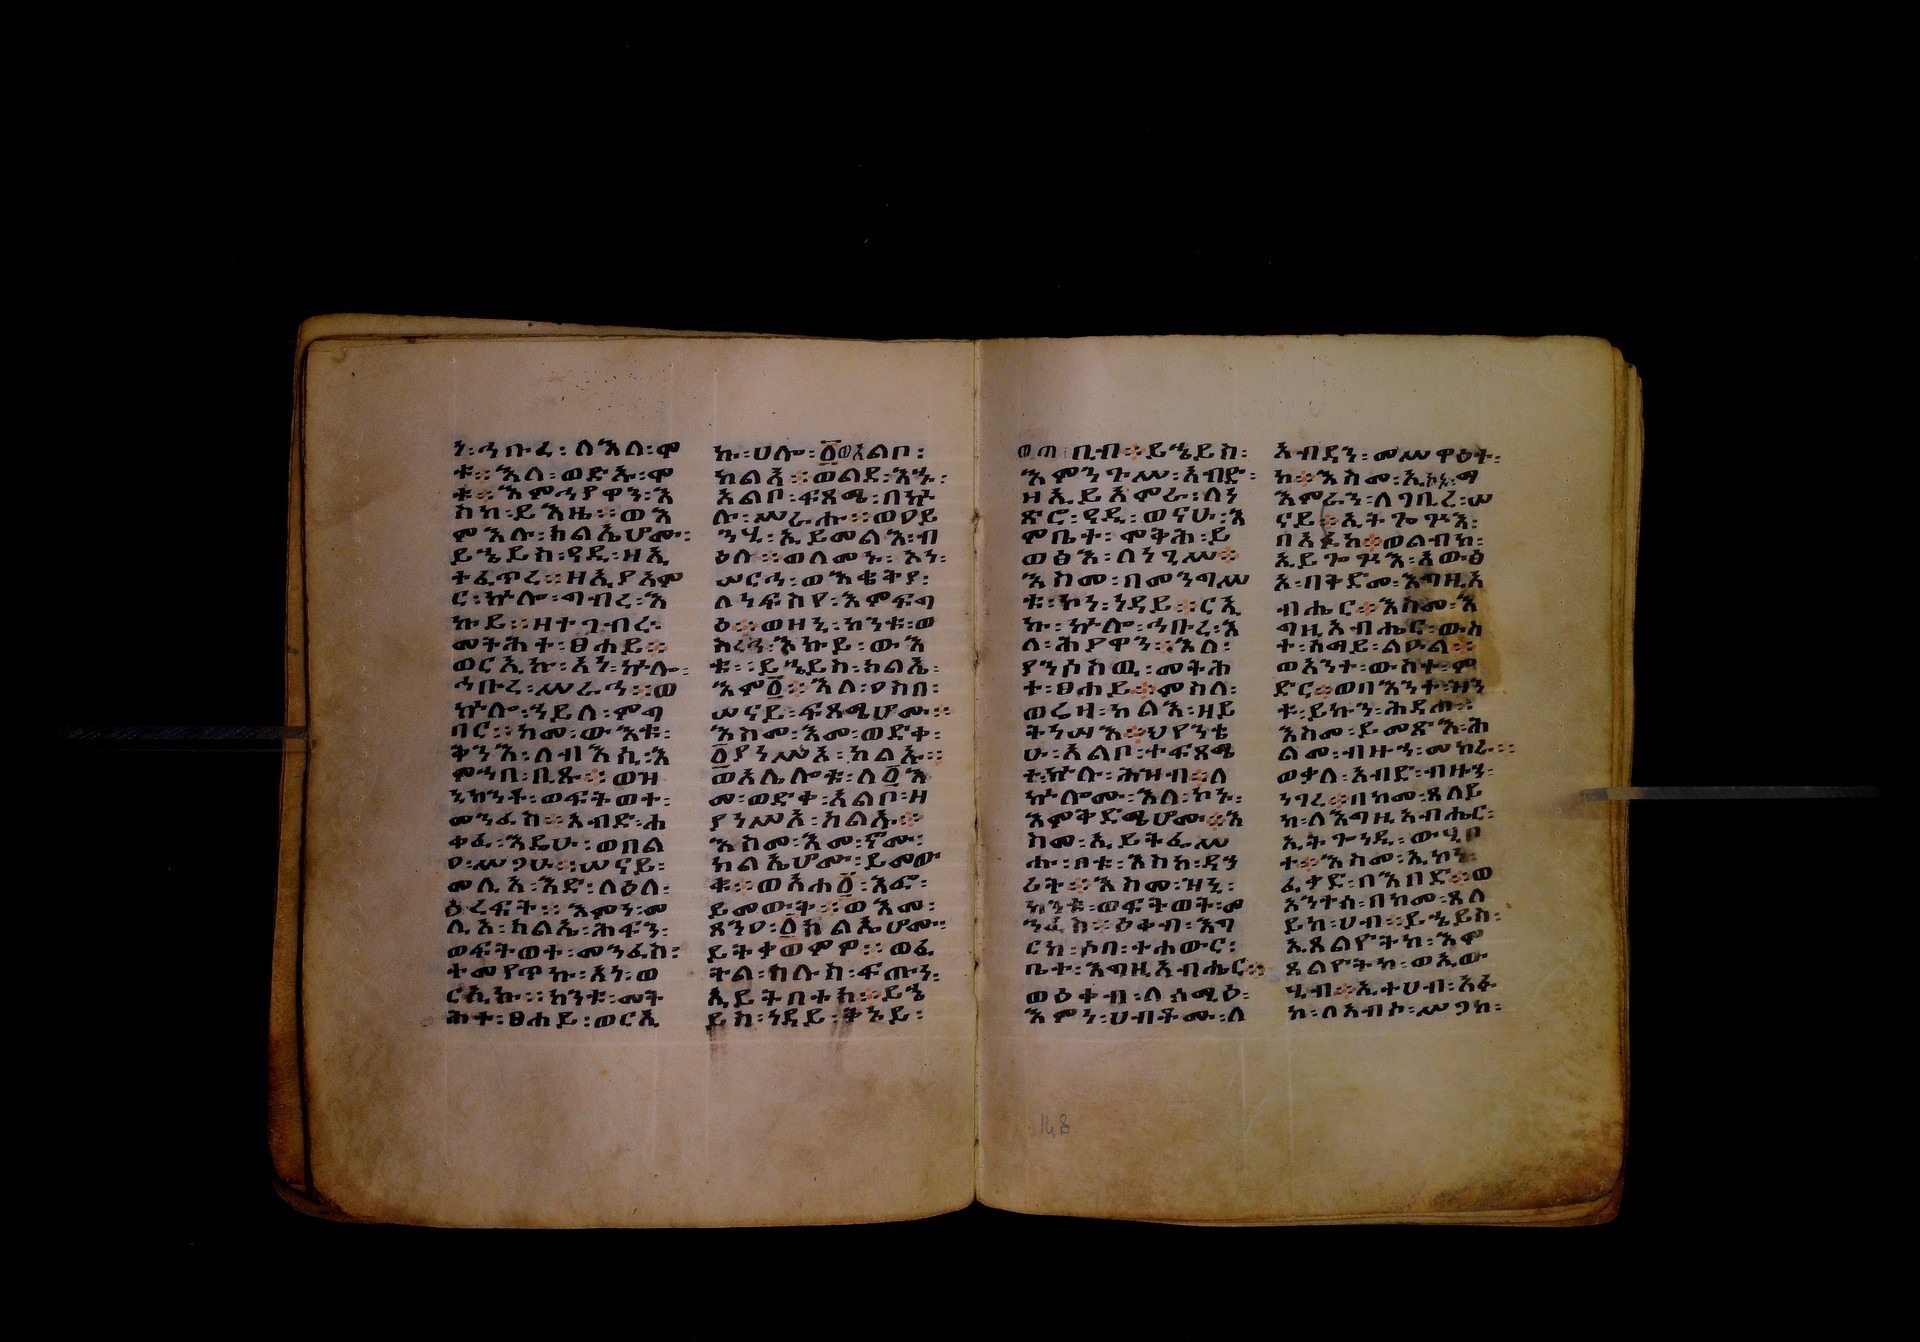 ን፡ኅቡረ፡ለእለ፡ሞ
ቱ፡፡እለ፡ወድኡ፡ሞ
ቱ፡፡እምኅያዋን፡እ
ስከ፡ይእዜ፡፡ወእ
ምእሉ፡ክልኤሆሙ፡
ይኄይስ፡ዓዲ፡ዘኢ
ተፈጥረ፡፡ዘኢያእም
ር፡ኵሎ፡ግብረ፡እ
ኩይ፡፡ዘተገብረ፡
መትሕተ፡ፀሐይ፡፡
ወርኢኩ፡አነ፡ኵሎ፡
ኅቡረ፡ሥራኅ፡፡ወ
ኵሎ፡ኀይለ፡ምግ
ባር፡፡ከመ፡ውእቱ፡
ቅንአ፡ለብእሲ፡እ
ምኀበ፡ቢጹ፡፡ወዝ
ንከንቱ፡ወፍትወተ፡
መንፈስ፡፡አብድ፡ሐ
ቀፈ፡እዴሁ፡ወበል
ዐ፡ሥጋሁ፡፡ሠናይ፡
መሊአ፡እድ፡ለዕለ፡
ዕረፍት፡፡እምነ፡መ
ሊአ፡ክልኤ፡ሕፍን፡
ወፍትወተ፡መንፈስ፡
ተመየጥኩ፡አነ፡ወ
ርኢኩ፡፡ከንቱ፡መት
ሕተ፡ፀሐይ፡ወርኢ
ኩ፡ሀሎ፡፩ወአልቦ፡
ካልእ፡፡ወልደ፡እኁ፡
አልቦ፡ፍጻሜ፡በኵ
ሉ፡ሥራሑ፡፡ወዐይ
ንሂ፡ኢይመልእ፡ብ
ዕሉ፡፡ወለመኑ፡አነ፡
ሠርኅ፡ወእቴትያ፡
ለነፍስየ፡እምፍግ
ዕ፡፡ወዝኒ፡ከንቱ፡ወ
ጻረኅ፡እኩይ፡ውእ
ቱ፡፡ይኄይስ፡ክልኤ፡
እም፩፡፡እለ፡ዐስበ፡
ሠናይ፡ፍጻሜሆሙ፡፡
እስመ፡እመ፡ወድቀ፡
፩ያነሥእ፡ካልኡ፡፡
ወአሌሎቱ፡ለ፩እ
መ፡ወድቀ፡አልቦ፡ዘ
ያነሥእ፡ካልኡ፡፡
እስመ፡እመ፡ኖሙ፡
ክልኤሆሙ፡ይመው
ቁ፡፡ወእሐ፩፡እፎ፡
ይመውቅ፡፡ወእመ፡
ጸንዐ፡፩ክልኤሆሙ፡
ይትቃወምዎ፡፡ወፈ
ትል፡ስሉስ፡ፍጡነ፡
ኢይትበተክ፡፡ይኄ
ይስ፡ነዳይ፡ቅኑይ፡
ወጠቢብ፡፡ይኄይስ፡
እምንጉሥ፡አብድ፡
ዘኢይአምራ፡ለነ
ጽሮ፡ዓዲ፡ወናሁ፡እ
ምቤተ፡ሞቅሕ፡ይ
ወፅእ፡ለነጊሥ፡፡
እስመ፡በመንግሥ
ቱ፡ኮነ፡ነዳይ፡፡ርኢ
ኩ፡ኵሎ፡ኅቡረ፡እ
ለ፡ሕያዋን፡፡እለ፡
ያንሶስዉ፡መትሕ
ተ፡ፀሐይ፡፡ምስለ፡
ወሬዛ፡ካልእ፡ዘይ
ትነሣእ፡፡ህየንቴ
ሁ፡አልቦ፡ተፍጻሜ
ተ፡ኵሉ፡ሕዝብ፡፡ለ
ኵሎሙ፡እለ፡ኮኑ፡
እምቅድሜሆሙ፡፡እ
ስመ፡ኢይትፌሥ
ሑ፡ቦቱ፡እስከ፡ዳኃ
ሪት፡፡እስመ፡ዝኒ፡
ከንቱ፡ወፍትወት፡መ
ንፈስ፡፡ዕቀብ፡እግ
ርከ፡ሶበ፡ተሐውር፡
ቤተ፡እግዚአብሔር፡፡
ወዕቀብ፡ለሰሚዕ፡
እምነ፡ሀብቶሙ፡ለ
አብዳን፡መሥዋዕት፡
ከ፡፡እስመ፡ኢኮኑ፡ማ
እምራን፡ለገቢረ፡ሠ
ናይ፡፡ኢትጐጕእ፡
በአፉከ፡፡ወልብከ፡
ኢይጐጕእ፡አውፅ
አ፡በቅድመ፡እግዚአ
ብሔር፡፡እስመ፡እ
ግዚአብሔር፡ውስ
ተ፡ሰማይ፡ልዑል፡፡
ወአንተ፡ውስተ፡ም
ድር፡፡ወበእንተ፡ዝን
ቱ፡ይኩን፡ሕዳጠ፡፡
እስመ፡ይመጽእ፡ሕ
ልመ፡ብዙኅ፡መከራ፡፡
ወቃለ፡አብድ፡ብዙኀ፡
ነገረ፡፡በከመ፡ጸለይ
ከ፡ለእግዚአብሔር፡
ኢትጐንዲ፡ውሂቦ
ተ፡፡እስመ፡ኢኮነ፡
ፈቃድ፡በአበድ፡፡ወ
አንተሰ፡በከመ፡ጸለ
ይከ፡ሀብ፡፡ይኄይስ፡
ኢጸልዮትከ፡እሞ
ጸልዮትከ፡ወኢው
ሂብ፡፡ኢተሀብ፡አፉ
ከ፡ለአብሶ፡ሥጋከ፡
148